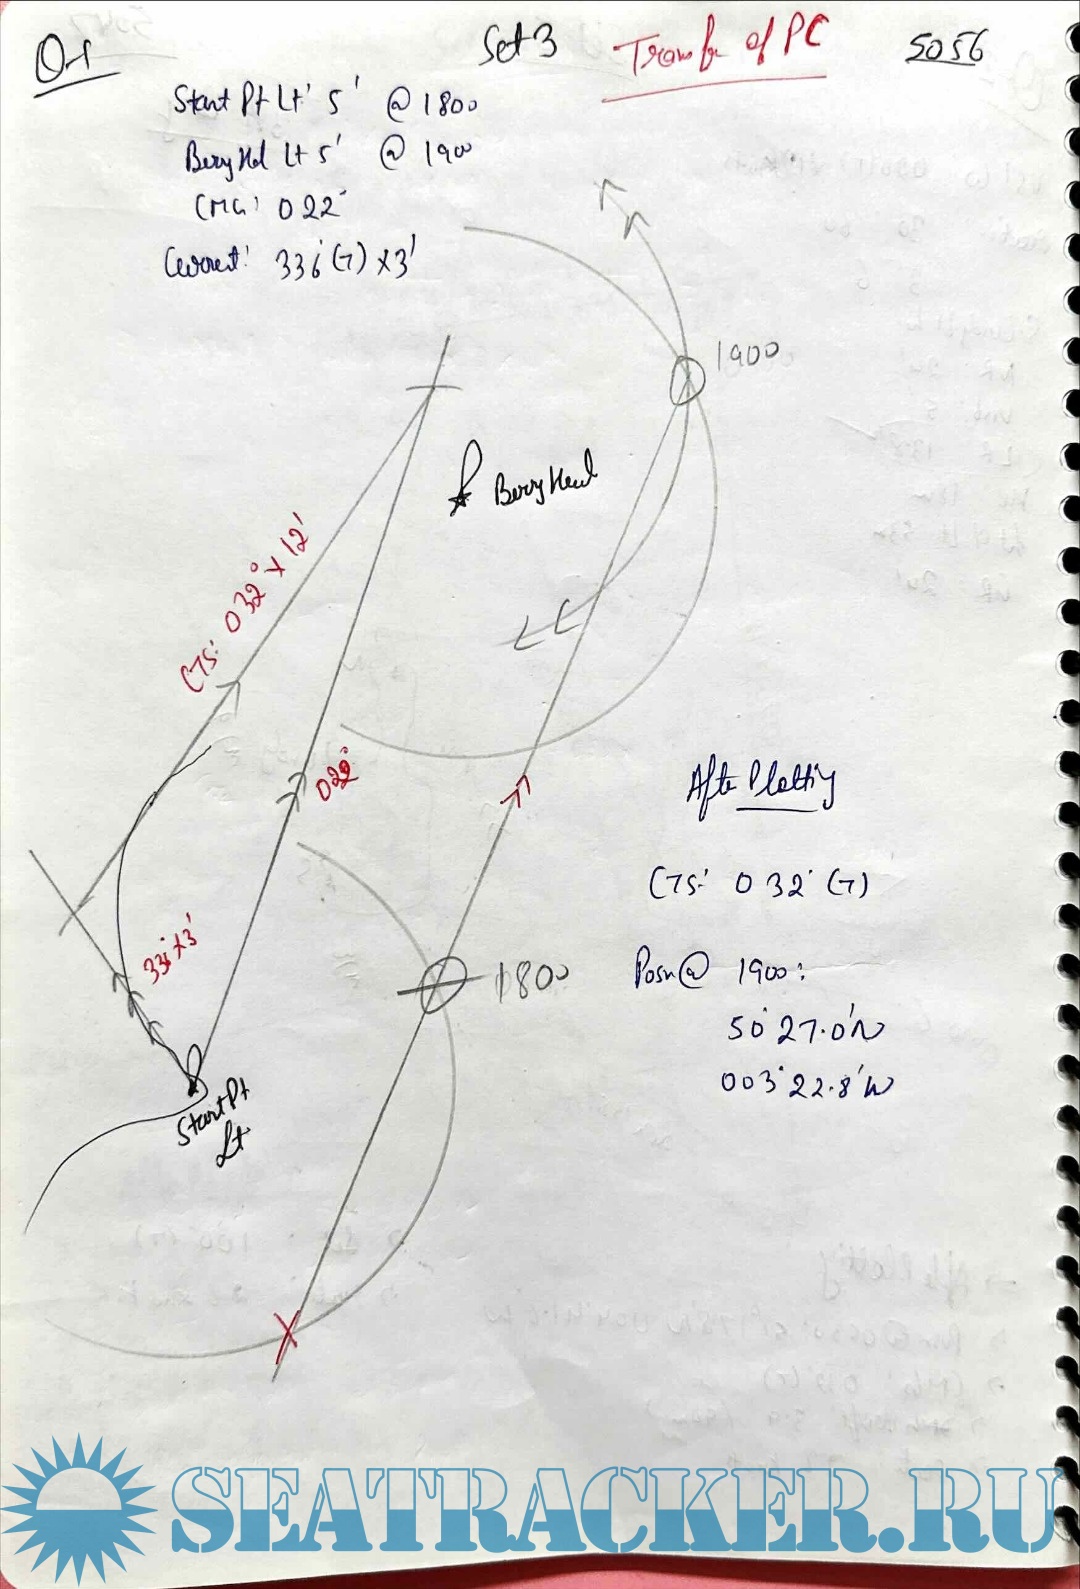 Q-1
Set 3
Transfer of PC
5056
Start Pt Lt' 5' @ 1800
Berry Hd Lt 5' @ 1900
CMG: 022°
Current: 336°(T) x 3'
1900
Berry Head
CTS: 032° x 12'
022°
After Plotting
CTS: 032°(T)
336° x 3'
1800
Posn @ 1900:
50° 27.0'N
003° 22.8'W
Start Pt
Lt
SEATRACKER.RU